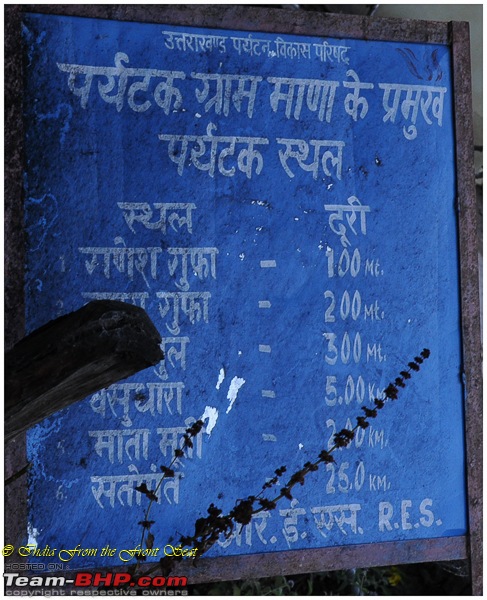 उत्तराखण्ड पर्यटन विकास परिषद्
पर्यटक ग्राम माणा के प्रमुख
पर्यटक स्थल
स्थल दूरी
गणेश गुफा - 100 Mt.
गुफा - 200 Mt.
- 300 Mt.
वसुधारा - 5.00
माता मूर्ती - KM.
सतोपंत 25.0 KM.
आर. ई. एस. R.E.S.
© India From the Front Seat
POSTED ON
Team-BHP.com
copyright respective owners